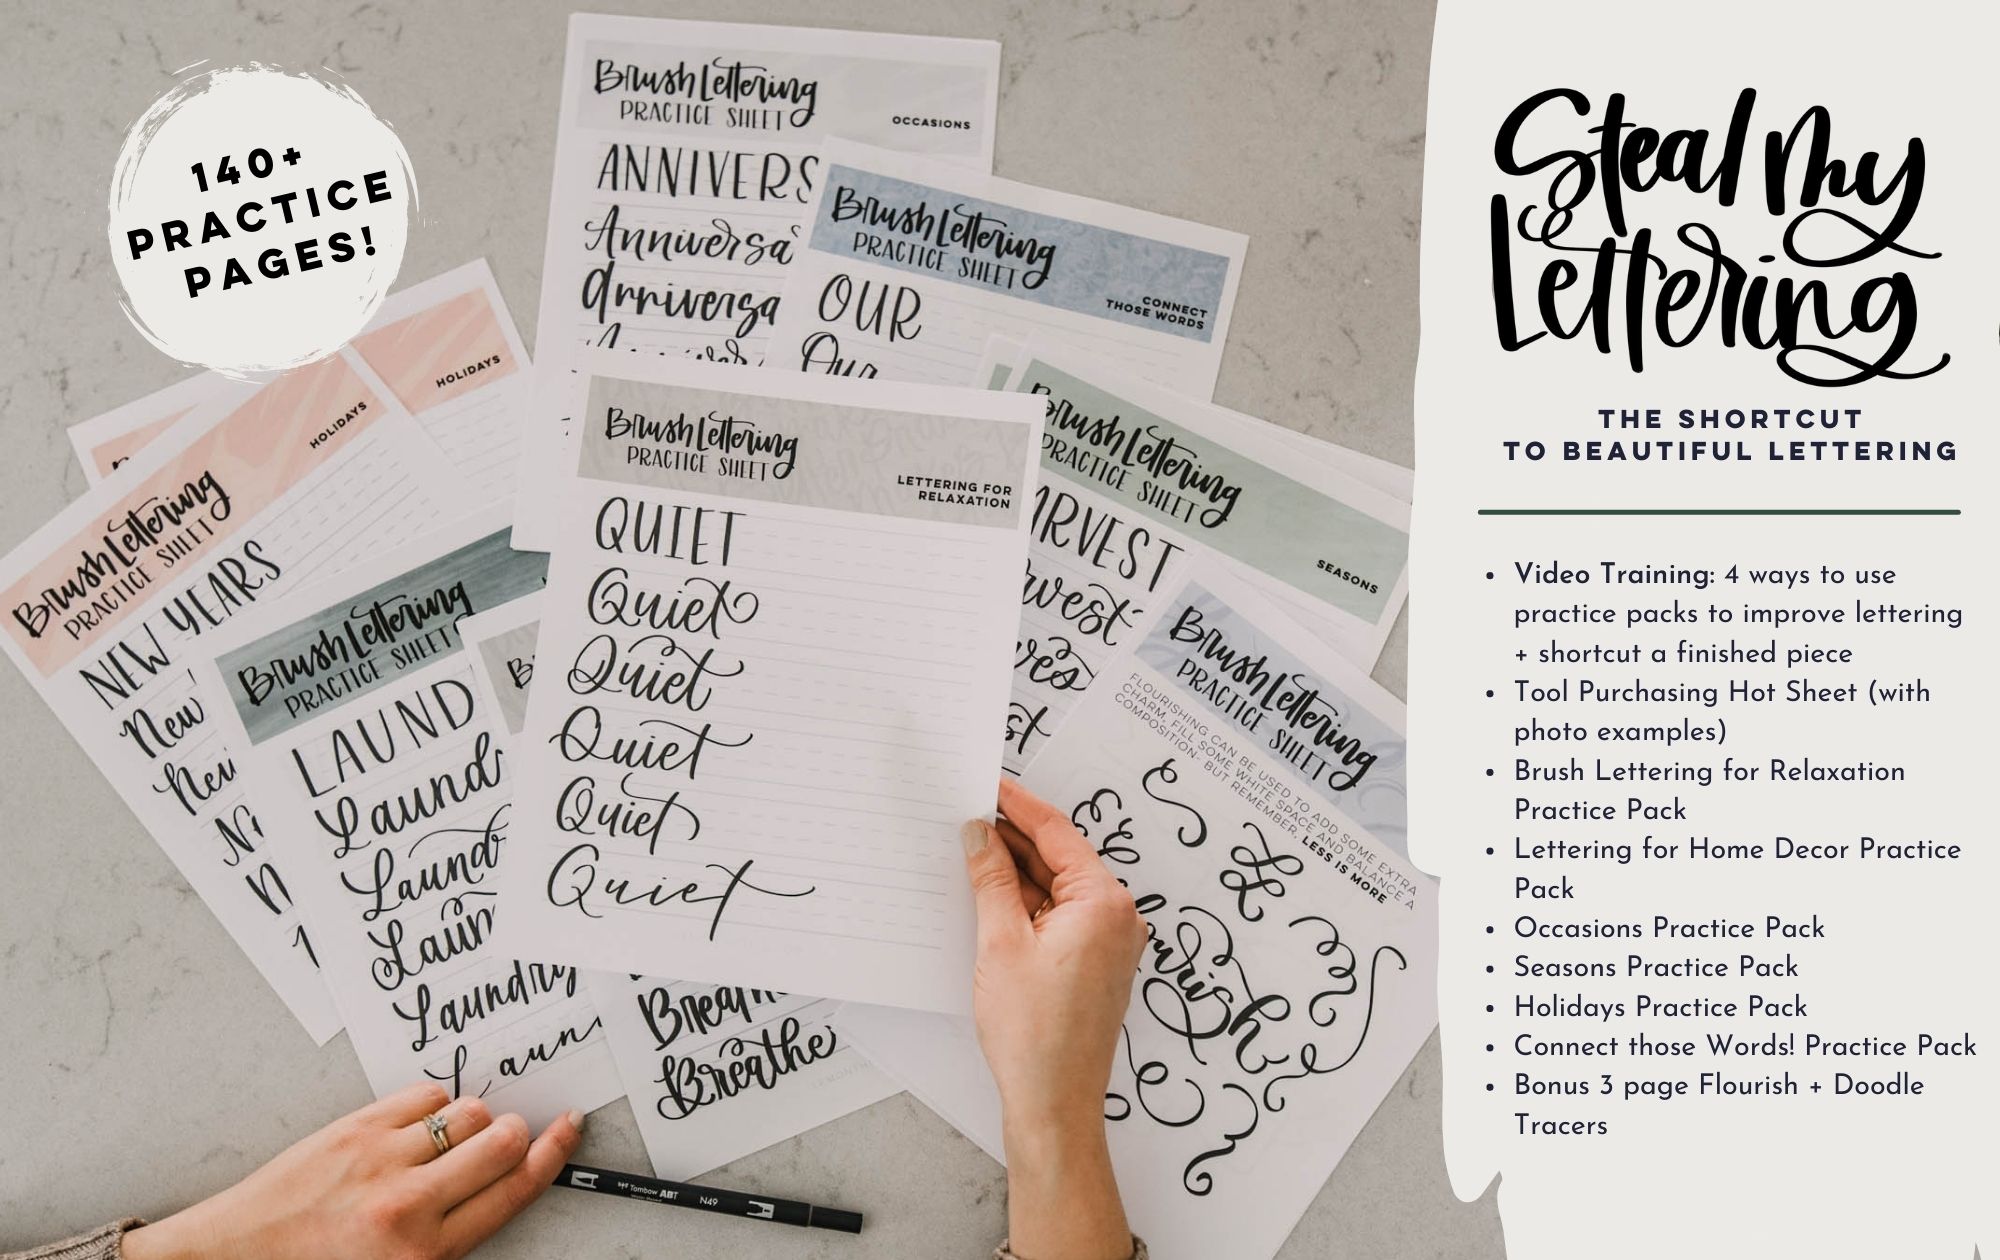 140+
PRACTICE
PAGES!
Brush Lettering
PRACTICE SHEET
OCCASIONS
Anniversa
Brush Lettering
PRACTICE SHEET
CONNECT
THOSE WORDS
OUR
Our
HOLIDAYS
HOLIDAYS
Brush Lettering
PRACTICE SHEET
NEW YEARS
New
Brush Lettering
PRACTICE SHEET
LAUND
Laund
Laund
Laun
Laundry
Laun
Brush Lettering
PRACTICE SHEET
LETTERING FOR
RELAXATION
QUIET
Quiet
Quiet
Quiet
Quiet
Quiet
Breathe
Brush Lettering
PRACTICE SHEET
SEASONS
Brush Lettering
PRACTICE SHEET
FLOURISHING CAN BE USED TO ADD SOME EXTRA
CHARM, FILL SOME WHITE SPACE AND BALANCE A
COMPOSITION- BUT REMEMBER, LESS IS MORE
Tombow ABT N49
Steal My
Lettering
THE SHORTCUT
TO BEAUTIFUL LETTERING
• Video Training: 4 ways to use
practice packs to improve lettering
+ shortcut a finished piece
• Tool Purchasing Hot Sheet (with
photo examples)
• Brush Lettering for Relaxation
Practice Pack
• Lettering for Home Decor Practice
Pack
• Occasions Practice Pack
• Seasons Practice Pack
• Holidays Practice Pack
• Connect those Words! Practice Pack
• Bonus 3 page Flourish + Doodle
Tracers